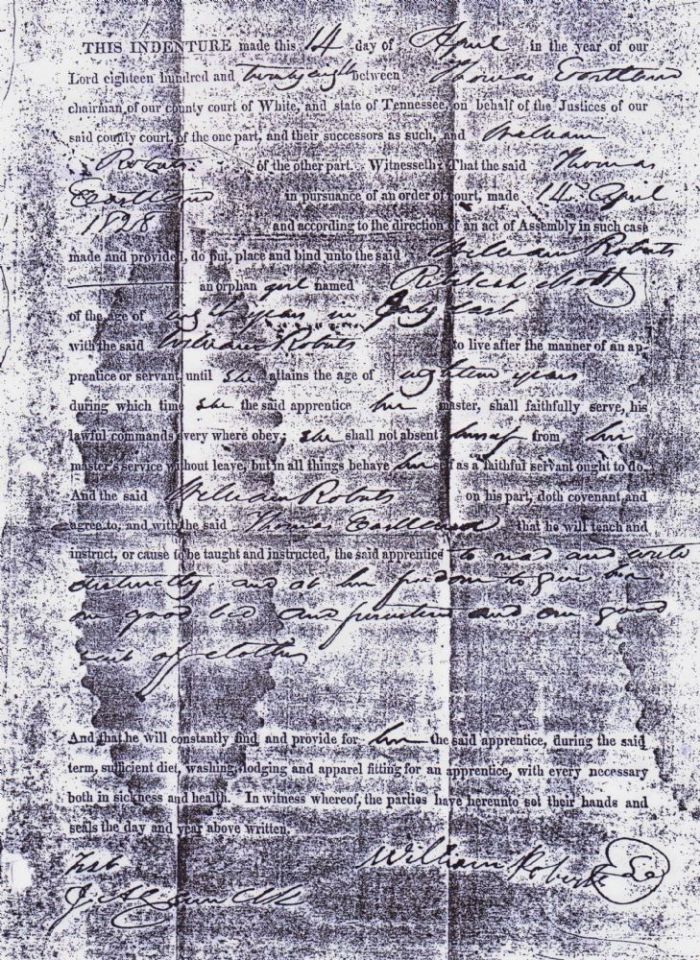 THIS INDENTURE made this 14 day of April in the year of our
Lord eighteen hundred and twenty eight between Thomas Eastland
chairman of our county court of White, and state of Tennessee, on behalf of the Justices of our
said county court, of the one part, and their successors as such, and William
Roberts of the other part. Witnesseth: That the said Thomas
Eastland in pursuance of an order of court, made 14th April
1828 and according to the direction of an act of Assembly in such case
made and provided, do put, place and bind unto the said William Roberts
an orphan girl named
of the age of eight years in July last
with the said William Roberts to live after the manner of an ap-
prentice or servant until she attains the age of eighteen years
during which time she the said apprentice her master, shall faithfully serve, his
lawful commands every where obey; she shall not absent himself from her
master's service without leave, but in all things behave her self as a faithful servant ought to do.
And the said William Roberts on his part, doth covenant and
agree to, and with the said Thomas Eastland that he will teach and
instruct, or cause to be taught and instructed, the said apprentice to read and write
distinctly and at her freedom to give her
one good bed and furniture and one good
suit of clothes
And that he will constantly find and provide for her the said apprentice, during the said
term, sufficient diet, washing, lodging and apparel fitting for an apprentice, with every necessary
both in sickness and health. In witness whereof, the parties have hereunto set their hands and
seals the day and year above written.
William Roberts